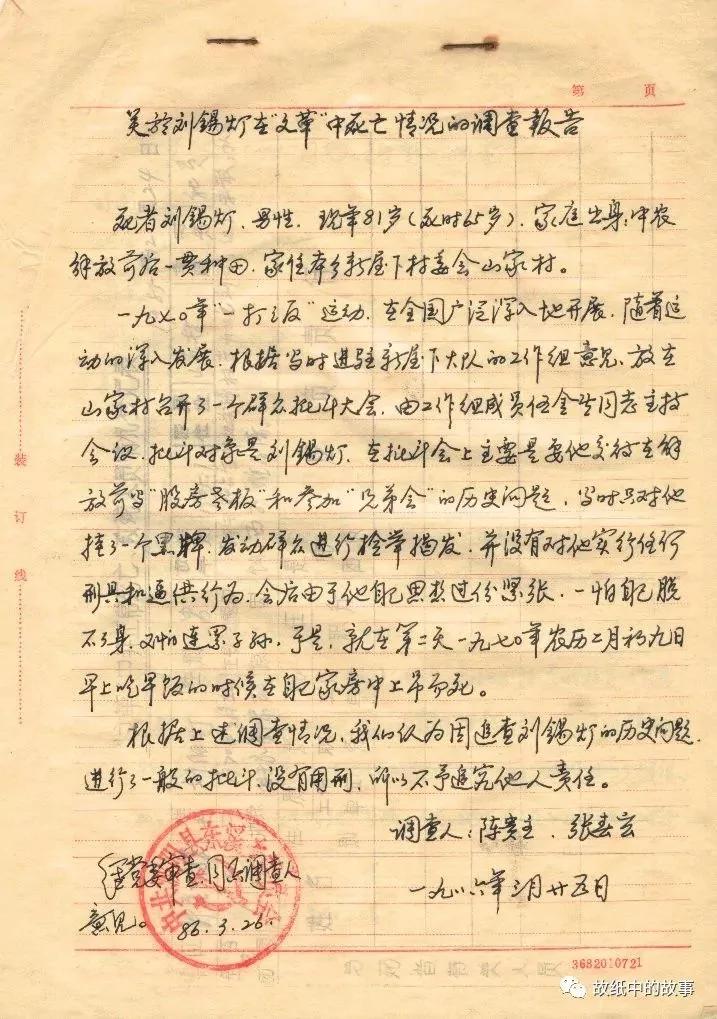 第 页
关于刘锡灯在"文革"中死亡情况的调查报告
死者刘锡灯、男性、现年81岁(死时65岁)、家庭出身:中农
解放前后一贯种田、家住本乡新屋下村委会山家村。
一九七〇年"一打三反"运动、在全国广泛深入地开展、随着运
动的深入发展、根据当时进驻新屋下大队的工作组意见、放在
山家村召开了一个群众批斗大会、由工作组成员伍金生同志主持
会议、批斗对象是刘锡灯、在批斗会上主要是要他交待在解
放前当"股房老板"和参加"兄弟会"的历史问题、当时只对他
挂了一个黑牌、发动群众进行检举揭发、并没有对他实行任何
刑具和逼供行为、会后由于他自己思想过份紧张、一怕自己脱
不了身、又怕连累子孙、于是、就在第二天一九七〇年农历二月初九日
早上吃早饭的时候在自己家房中上吊而死。
根据上述调查情况、我们认为因追查刘锡灯的历史问题、
进行了一般的批斗、没有用刑、所以不予追究他人责任。
调查人:陈贵生、张春云
一九八六年三月廿五日
经党委审查、同意调查人
意见。 86.3.26.
装订线
3682010721
故纸中的故事